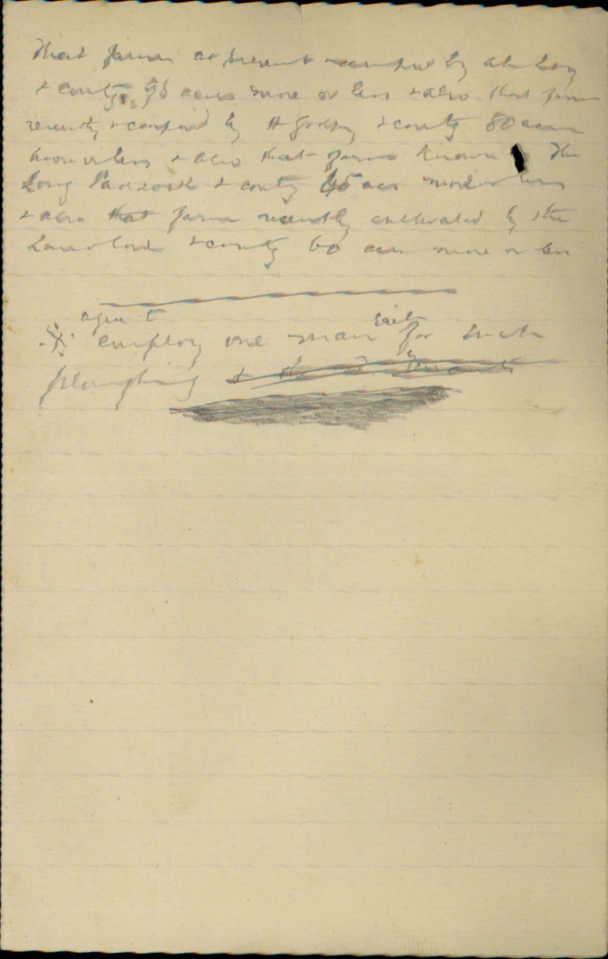 That farm at present occupied by Ah Loy
& contg 96 acres more or less & also that farm
recently occupied by H Godfrey & contg 80 acres
more or less & also that farm known The
Long Paddock & contg 45 acres more or less
& also that farm recently cultivated by the
Landlord & contg 60 acres more or less
agent
employ one man for such
ploughing & the